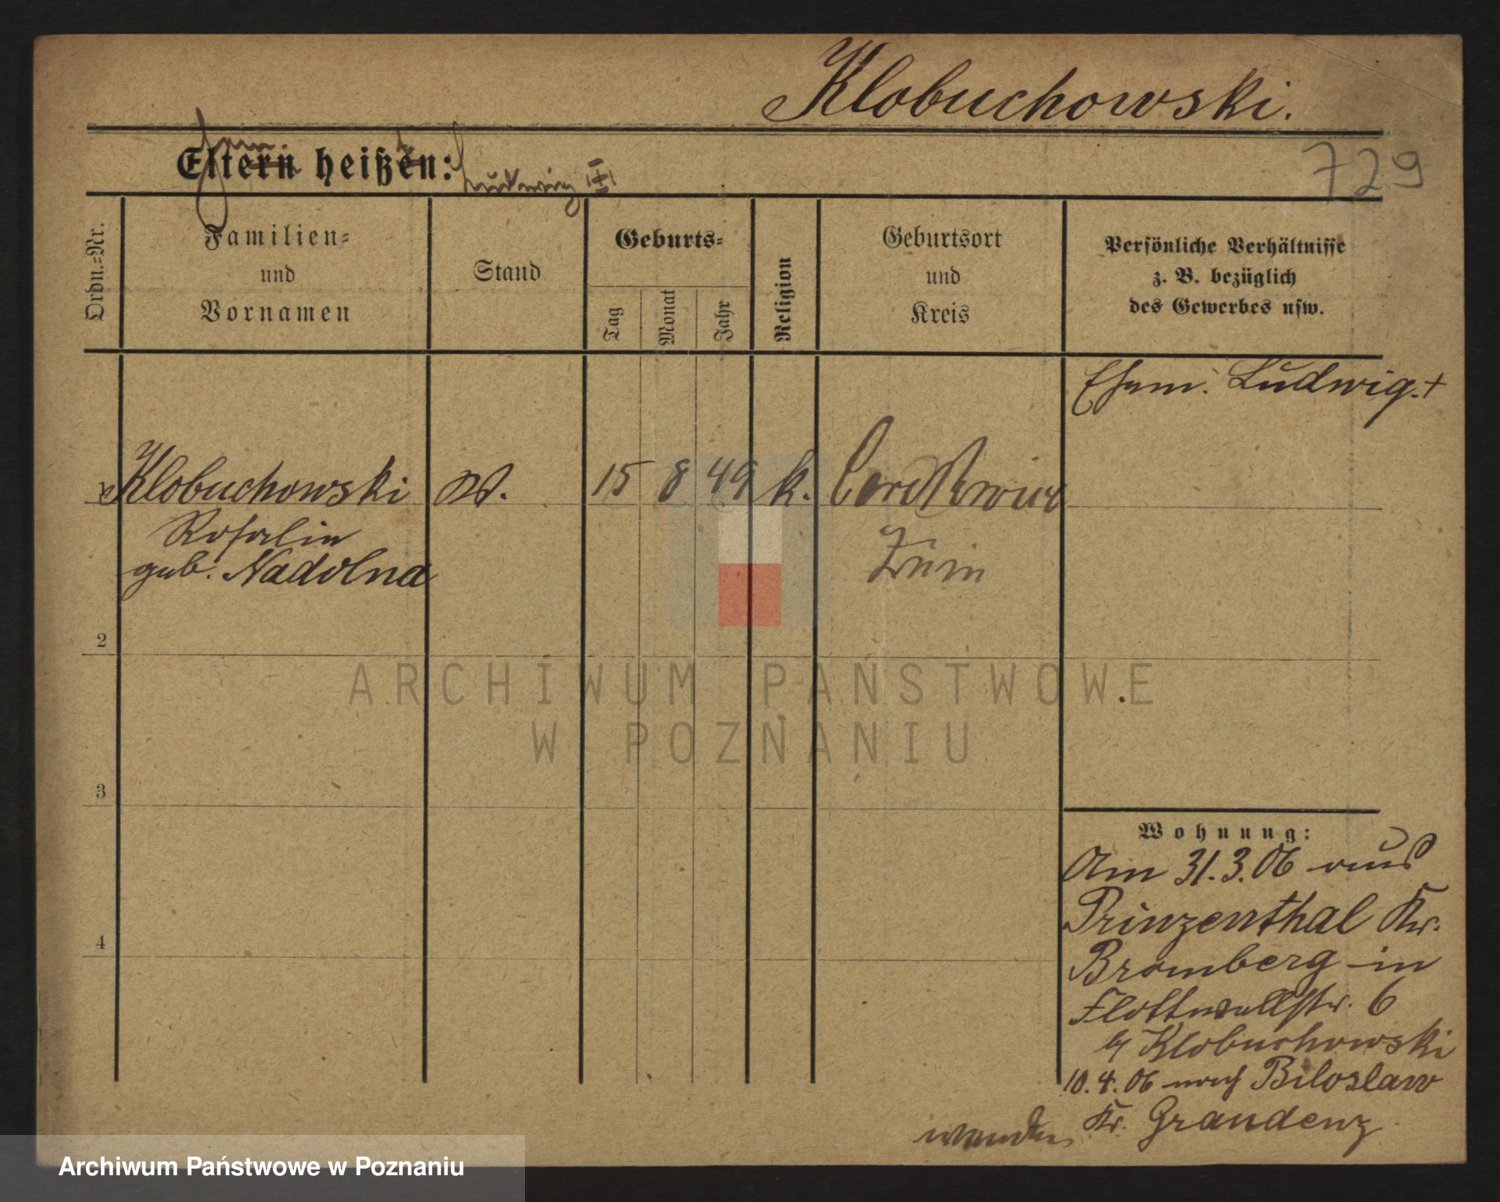 Klobuchowski.
729
Eltern heißen: Ludwig
Ordn.-Nr.
Familien-
und
Vornamen
Stand
Geburts-
Tag
Monat
Jahr
Religion
Geburtsort
und
Kreis
Persönliche Verhältnisse
z. B. bezüglich
des Gewerbes usw.
Ehem. Ludwig. +
Klobuchowski W. 15 8 49 k.
Rosalie
geb. Nadolna
Znin
2
3
4
Wohnung:
Am 31.3.06 aus
Prinzenthal Kr.
Bromberg in
Flottwellstr. 6
b/ Klobuchowski
10.4.06 nach Biloslaw
Kr. Graudenz
wenden
ARCHIWUM PAŃSTWOWE
W POZNANIU
Archiwum Państwowe w Poznaniu